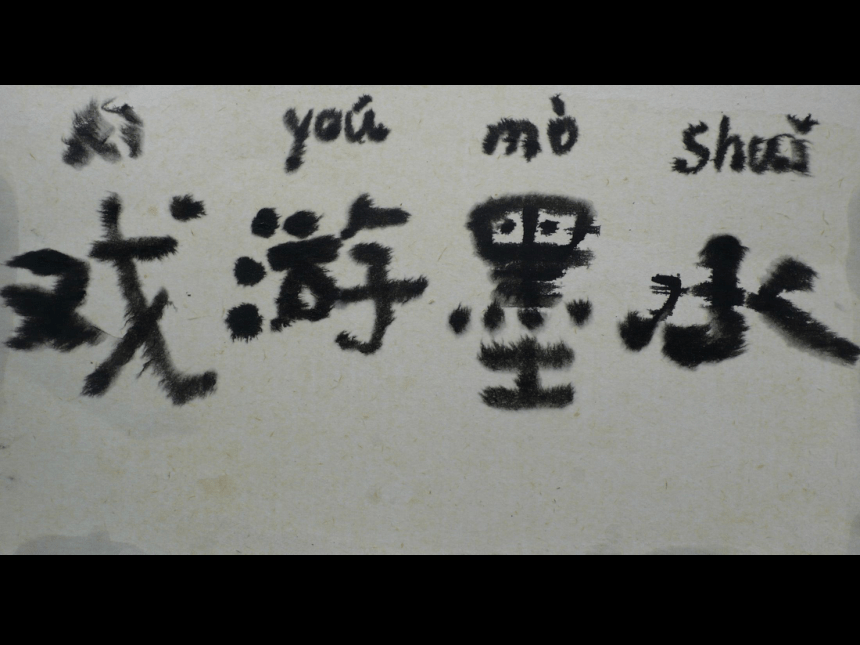 xì yoú mò shuǐ
戏游墨水